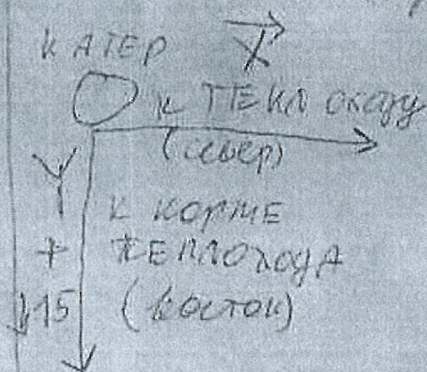 КАТЕР X
К ТЕПЛОХОДУ
(север)
Y
К КОРМЕ
+ ТЕПЛОХОДА
↓15 (восток)